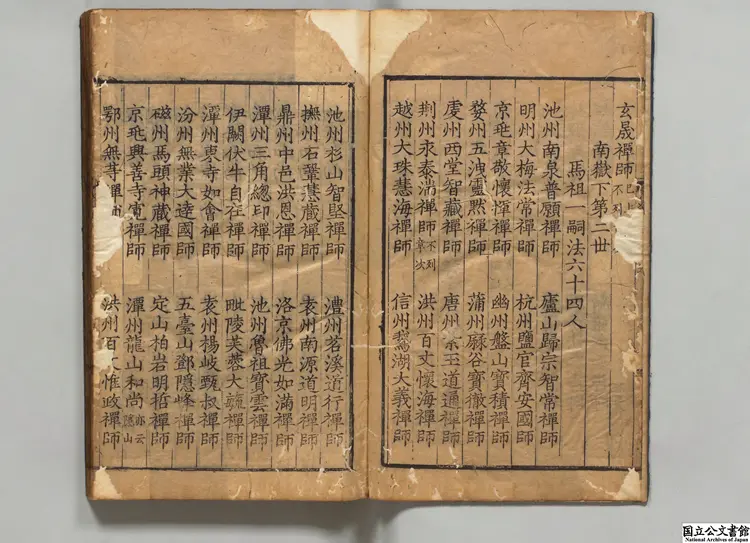 玄晟禪師 不列
南嶽下第二丗
馬祖一嗣法六十四人
池州南泉普願禪師 廬山歸宗智常禪師
明州大梅法常禪師 杭州鹽官齊安國師
京兆章敬懷惲禪師 幽州盤山寶積禪師
婺州五洩靈黙禪師 蒲州麻谷寶徹禪師
虔州西堂智藏禪師 唐州紫玉道通禪師
荆州永泰湍禪師不列章次 洪州百丈懷海禪師
越州大珠慧海禪師 信州鵞湖大義禪師
池州杉山智堅禪師 澧州茗溪道行禪師
撫州石鞏慧藏禪師 袁州南源道明禪師
鼎州中邑洪恩禪師 洛京佛光如滿禪師
潭州三角緫印禪師 池州魯祖寶雲禪師
伊闕伏牛自在禪師 毗陵芙蓉大毓禪師
潭州東寺如會禪師 袁州楊岐甄叔禪師
汾州無業大逹國師 五臺山鄧隱峰禪師
磁州馬頭神藏禪師 定山柏岩明哲禪師
京兆興善寺寬禪師 潭州龍山和尚亦云隱山
鄂州無等禪師 洪州百丈惟政禪師
国立公文書館
National Archives of Japan